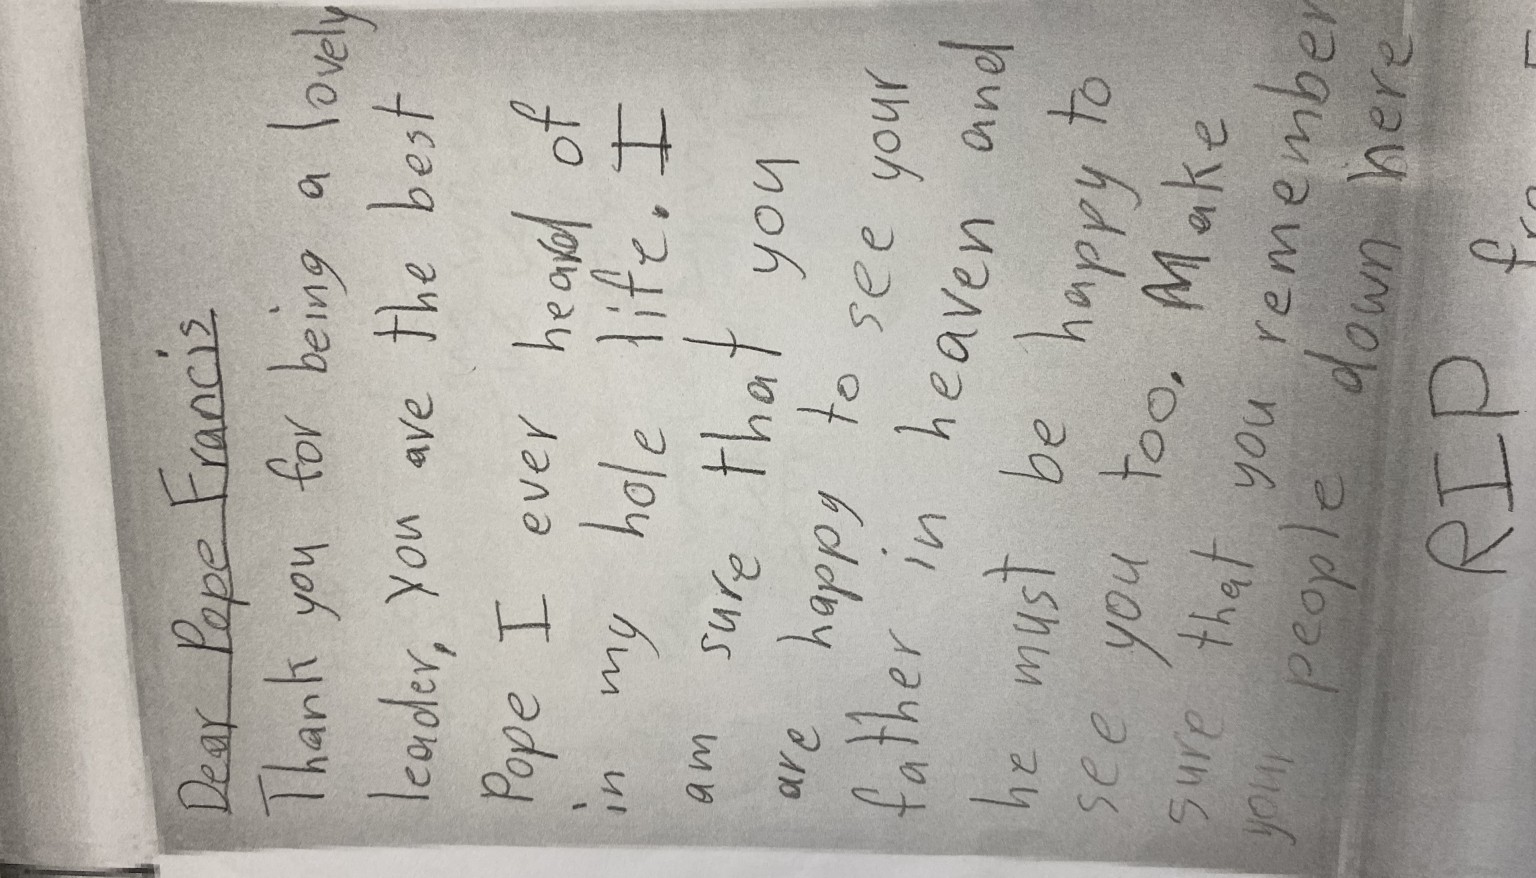 Dear Pope Francis
Thank you for being a lovely
leader, you are the best
Pope I ever heard of
in my hole life. I
am sure that you
are happy to see your
father in heaven and
he must be happy to
see you too. Make
sure that you remember
your people down here
RIP